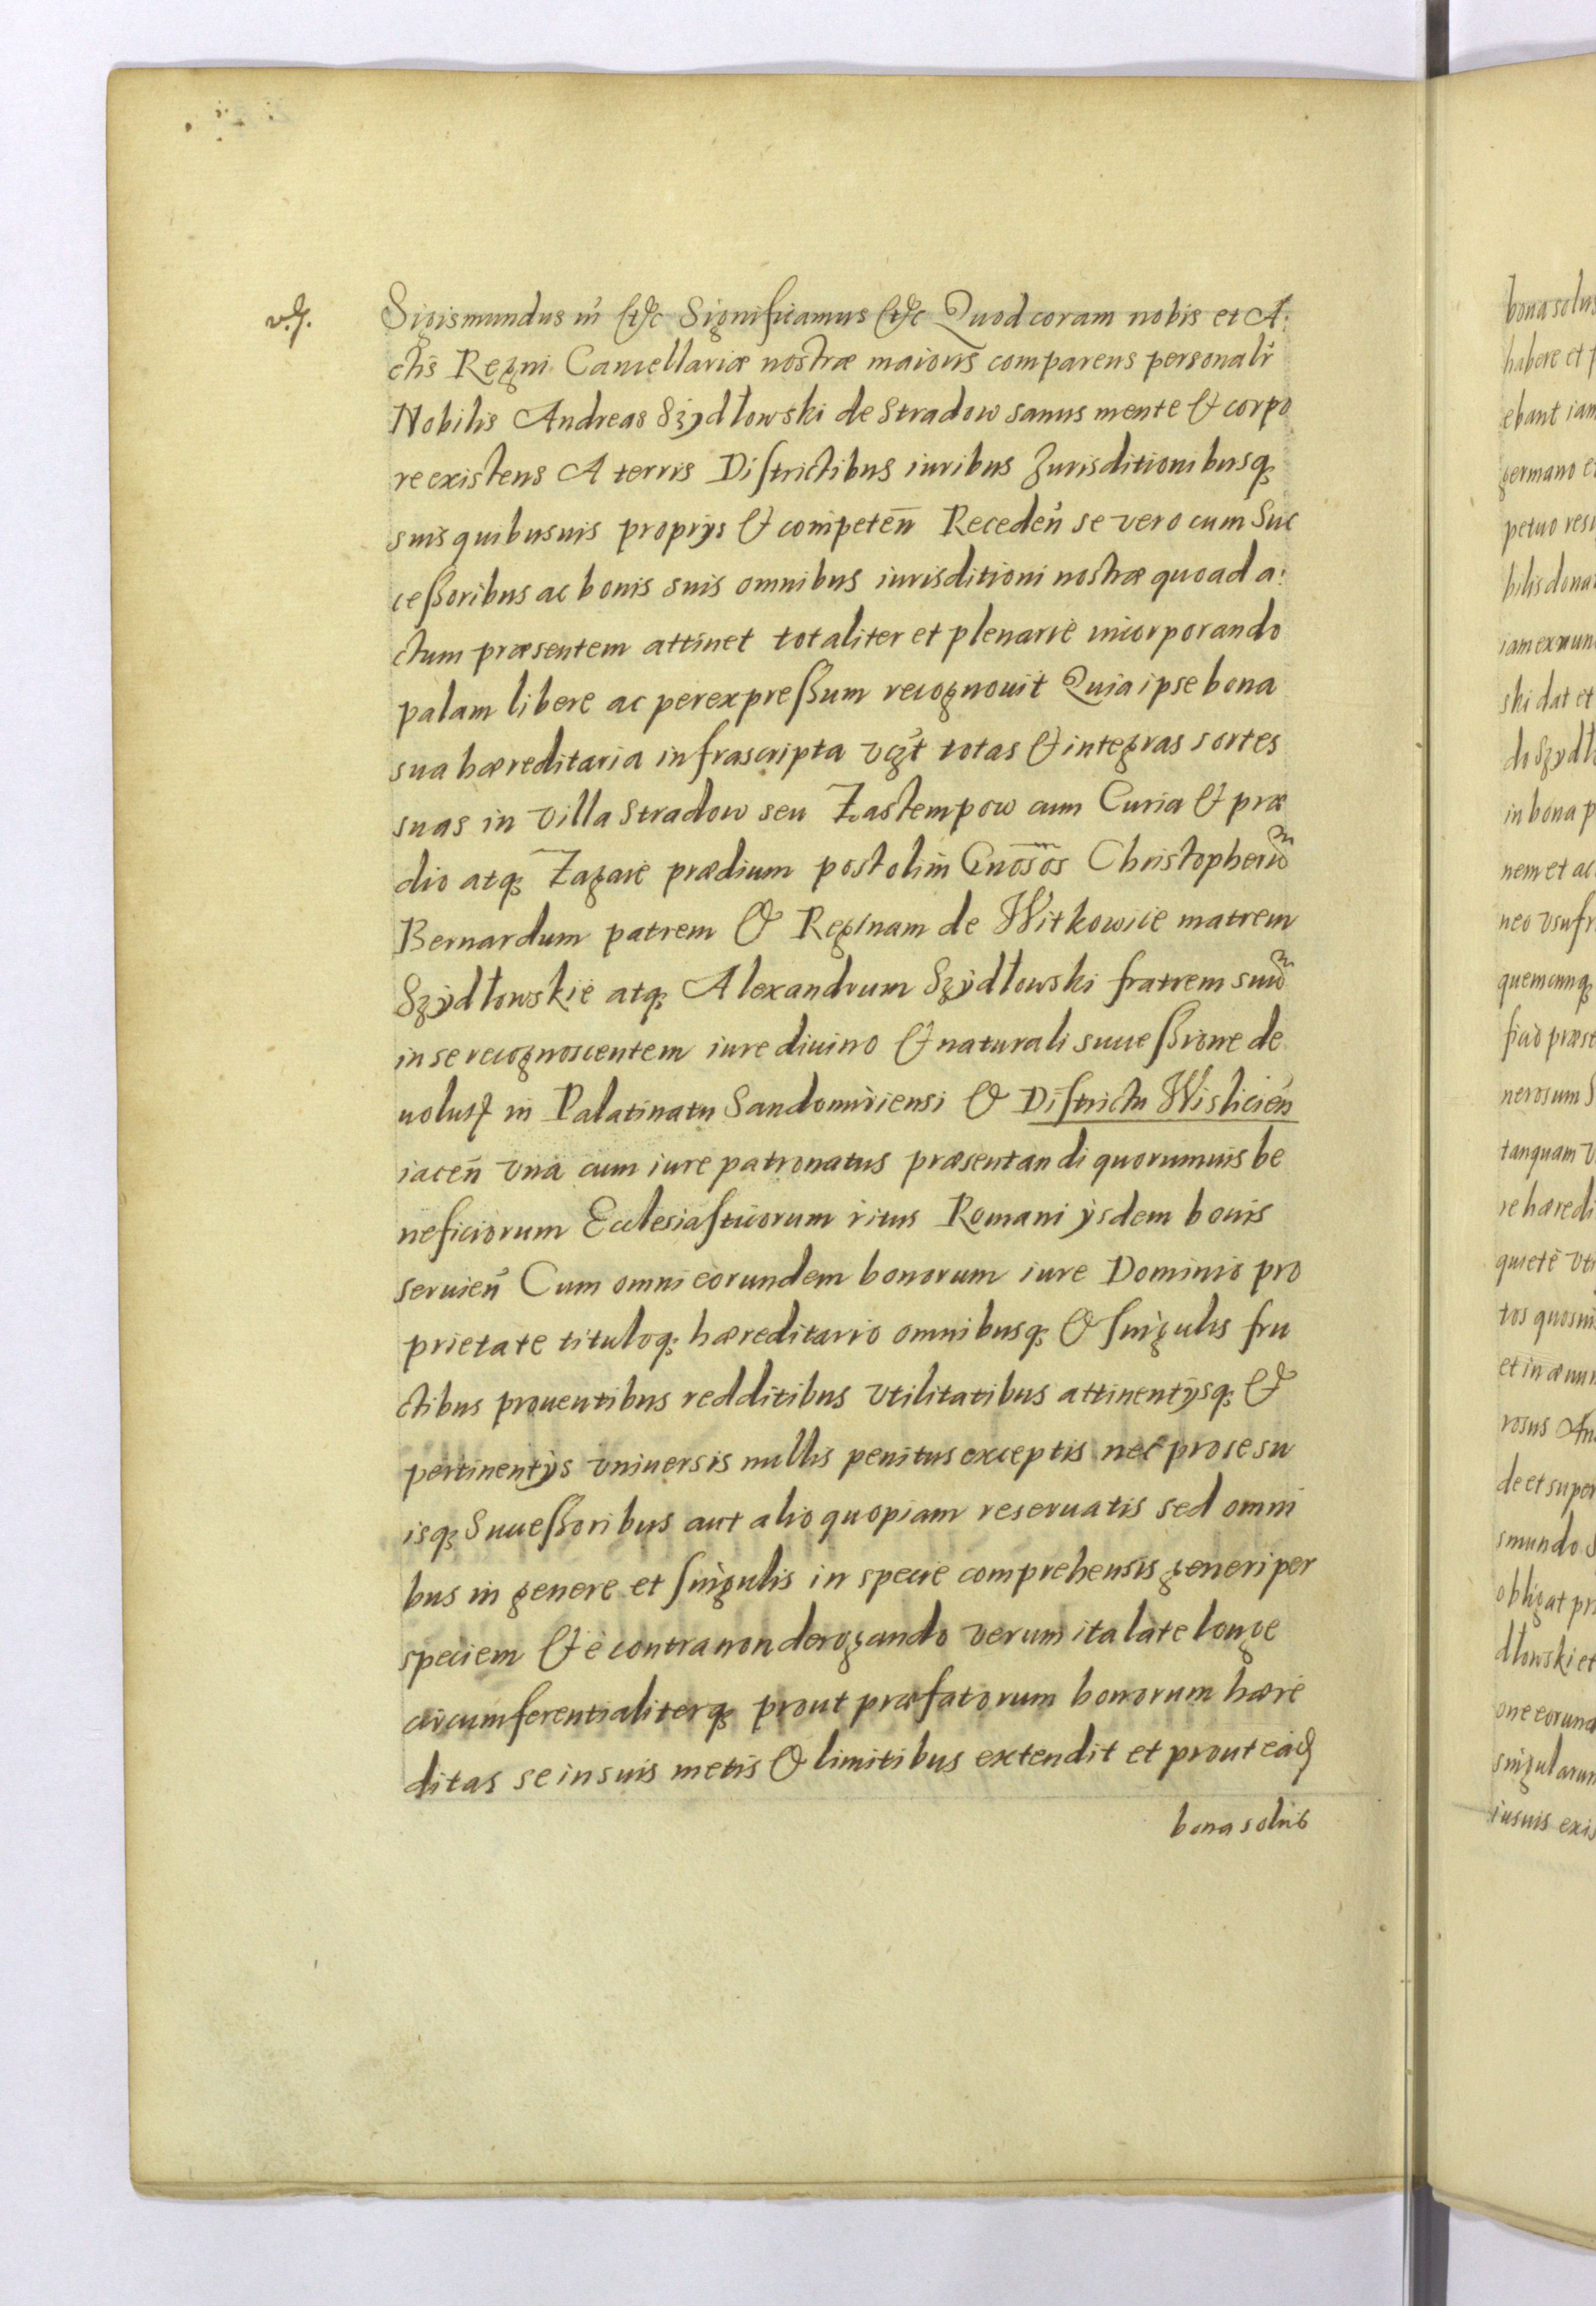 Sigismundus iii etc Significamus etc Quod coram nobis et A:
ctis Regni Cancellariæ nostræ maioris comparens personalr
v.q.
Nobilis Andreas Szydłowski de Stradow sanus mente & corpo
re existens A terris Districtibus iuribus Jurisditionibusq;
suis quibusuis proprijs & competeñ Recedeñ se vero cum Suc
cessoribus ac bonis suis omnibus iurisditioni nostræ quoad a:
ctum præsentem attinet totaliter et plenarie incorporando
palam libere ac per expressum recognouit Quia ipse bona
sua hæreditaria infrascripta vczt totas & integras sortes
suas in villa Stradow seu Zastempow cum Curia & præ
dio atq; Zagaie prædium post olim Gñosos Christopherū
Bernardum patrem & Reginam de Witkowice matrem
Szydłowskie atq; Alexandrum Szydłowski fratrem suū
in se recognoscentem iure diuino & naturali successione de
uolut in Palatinatu Sandomiriensi & Districtu Wislicieñ
iaceñ vna cum iure patronatus præsentandi quorumuis be
neficiorum Ecclesiasticorum ritus Romani ijsdem bonis
seruieñ Cum omni eorundem bonorum iure Dominio pro
prietate tituloq; hæreditario omnibusq; & singulis fru
ctibus prouentibus redditibus vtilitatibus attinentijsq; &
pertinentijs vniuersis nullis penitus exceptis nec pro se su
isq; Successoribus aut alio quopiam reseruatis sed omni
bus in genere et singulis in specie comprehensis generi per
speciem & è contra non derogando verum ita late longe
circumferentialiterq; prout præfatorum bonorum hære
ditas se in suis metis & limitibus extendit et prout eadē
bona solus
bona solus
habere et p
ebant iam
germano et
petuo resi
bilis dona
iam ex nun
ski dat et
do Szydło
in bona p
nem et ac
neo vsufr
quemcunq;
ficio præse
nerosum S
tanquam v
re hæredi
quietè vti
tos quosui
et in æuum
rosus An
de et super
smundo S
obligat pr
dłowski et
one eorund
singularum
iusuis exis